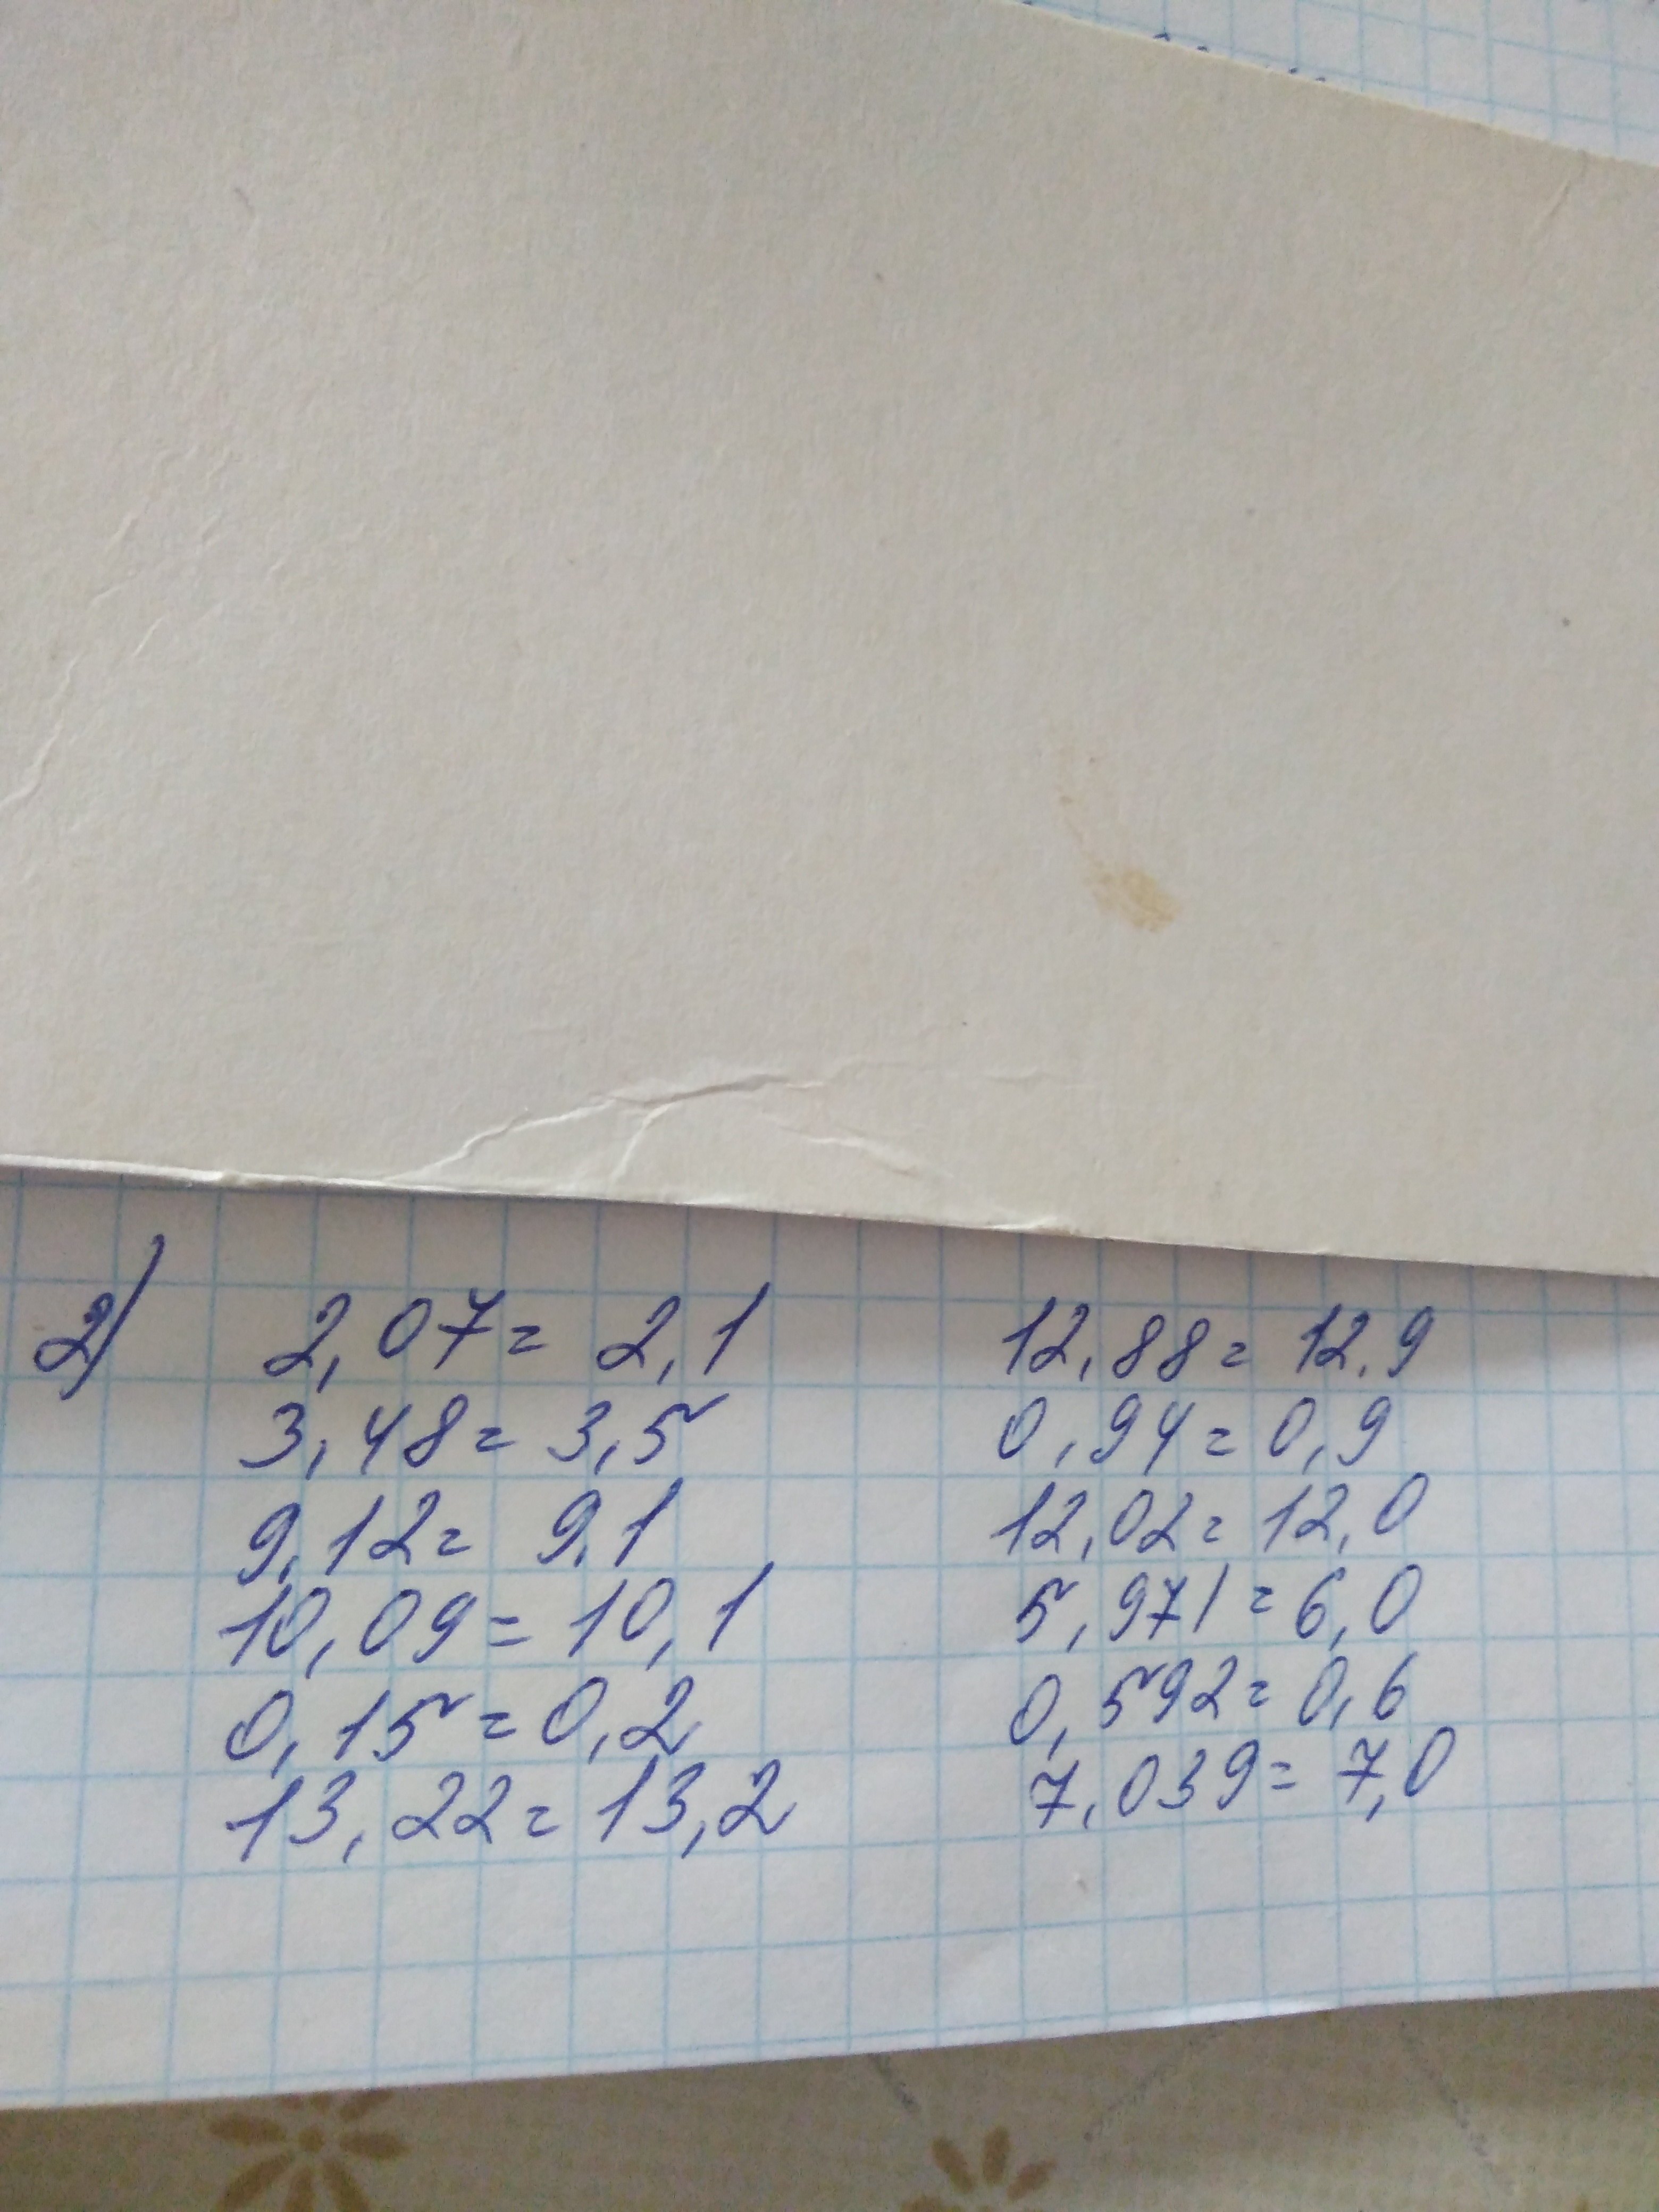 2) 2,07= 2,1
3,48= 3,5
9,12= 9,1
10,09= 10,1
0,15=0,2
13,22=13,2
12,88= 12.9
0,94= 0,9
12,02= 12,0
5,971=6,0
0,592=0,6
7,039= 7,0